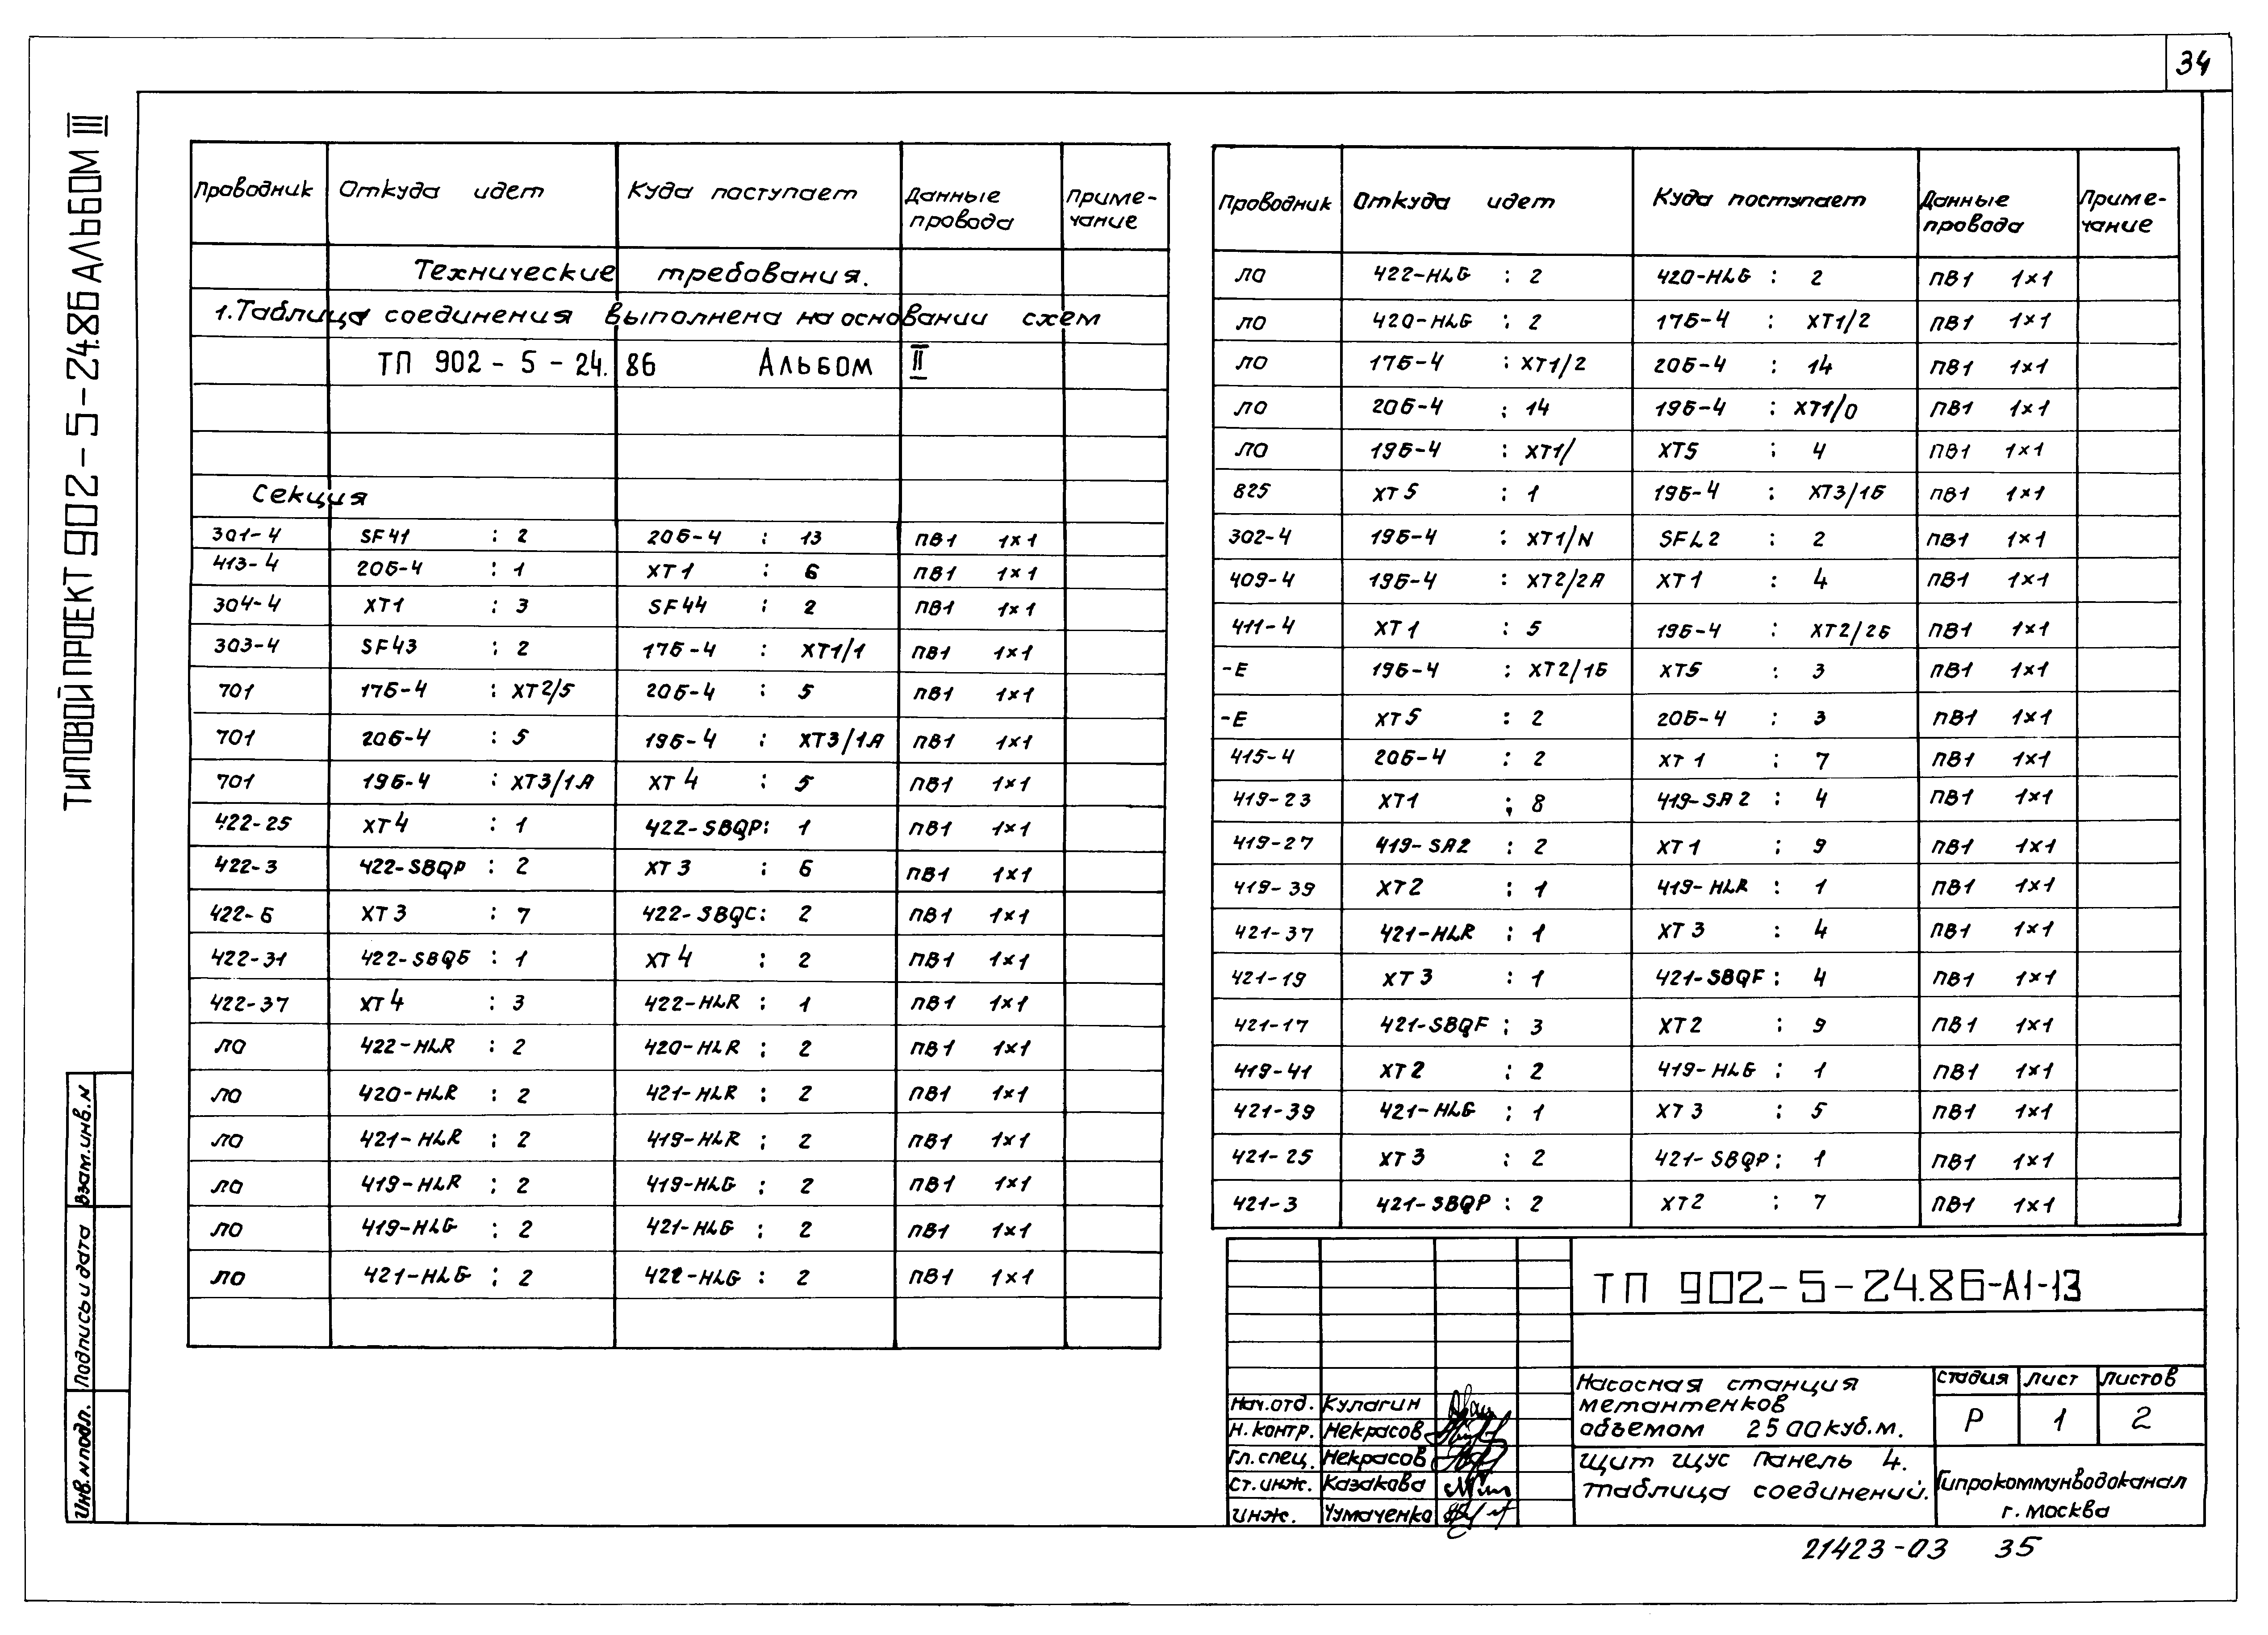 34
ТИПОВОЙ ПРОЕКТ 902-5-24.86 АЛЬБОМ III
Проводник Откуда идет Куда поступает Данные провода Приме-чание
Технические требования.
1. Таблица соединения выполнена на основании схем
ТП 902-5-24.86 Альбом II
Секция
301-4 SF41 : 2 20Б-4 : 13 ПВ1 1×1
413-4 20Б-4 : 1 XT1 : 6 ПВ1 1×1
304-4 XT1 : 3 SF44 : 2 ПВ1 1×1
303-4 SF43 : 2 17Б-4 : XT1/1 ПВ1 1×1
701 17Б-4 : XT2/5 20Б-4 : 5 ПВ1 1×1
701 20Б-4 : 5 19Б-4 : XT3/1А ПВ1 1×1
701 19Б-4 : XT3/1А XT4 : 5 ПВ1 1×1
422-25 XT4 : 1 422-SBQP : 1 ПВ1 1×1
422-3 422-SBQP : 2 XT3 : 6 ПВ1 1×1
422-6 XT3 : 7 422-SBQC : 2 ПВ1 1×1
422-31 422-SBQБ : 1 XT4 : 2 ПВ1 1×1
422-37 XT4 : 3 422-HLR : 1 ПВ1 1×1
ЛО 422-HLR : 2 420-HLR : 2 ПВ1 1×1
ЛО 420-HLR : 2 421-HLR : 2 ПВ1 1×1
ЛО 421-HLR : 2 419-HLR : 2 ПВ1 1×1
ЛО 419-HLR : 2 419-HLG : 2 ПВ1 1×1
ЛО 419-HLG : 2 421-HLG : 2 ПВ1 1×1
ЛО 421-HLG : 2 422-HLG : 2 ПВ1 1×1
Проводник Откуда идет Куда поступает Данные провода Приме-чание
ЛО 422-HLG : 2 420-HLG : 2 ПВ1 1×1
ЛО 420-HLG : 2 17Б-4 : XT1/2 ПВ1 1×1
ЛО 17Б-4 : XT1/2 20Б-4 : 14 ПВ1 1×1
ЛО 20Б-4 : 14 19Б-4 : XT1/0 ПВ1 1×1
ЛО 19Б-4 : XT1/ XT5 : 4 ПВ1 1×1
825 XT5 : 1 19Б-4 : XT3/1Б ПВ1 1×1
302-4 19Б-4 : XT1/N SFL2 : 2 ПВ1 1×1
409-4 19Б-4 : XT2/2А XT1 : 4 ПВ1 1×1
411-4 XT1 : 5 19Б-4 : XT2/2Б ПВ1 1×1
-Е 19Б-4 : XT2/1Б XT5 : 3 ПВ1 1×1
-Е XT5 : 2 20Б-4 : 3 ПВ1 1×1
415-4 20Б-4 : 2 XT1 : 7 ПВ1 1×1
419-23 XT1 : 8 419-SA2 : 4 ПВ1 1×1
419-27 419-SA2 : 2 XT1 : 9 ПВ1 1×1
419-39 XT2 : 1 419-HLR : 1 ПВ1 1×1
421-37 421-HLR : 1 XT3 : 4 ПВ1 1×1
421-19 XT3 : 1 421-SBQF : 4 ПВ1 1×1
421-17 421-SBQF : 3 XT2 : 9 ПВ1 1×1
419-41 XT2 : 2 419-HLG : 1 ПВ1 1×1
421-39 421-HLG : 1 XT3 : 5 ПВ1 1×1
421-25 XT3 : 2 421-SBQP : 1 ПВ1 1×1
421-3 421-SBQP : 2 XT2 : 7 ПВ1 1×1
Взам.инв.N
Подпись и дата
Инв.N подл.
ТП 902-5-24.86-А1-13
Нач.отд. Кулагин
Н.контр. Некрасов
Гл.спец. Некрасов
Ст.инж. Казакова
инж. Чумаченко
Насосная станция
метантенков
объемом 2500куб.м.
щит щус панель 4.
таблица соединений.
стадия лист листов
Р 1 2
Гипрокоммунводоканал
г. москва
21423-03 35